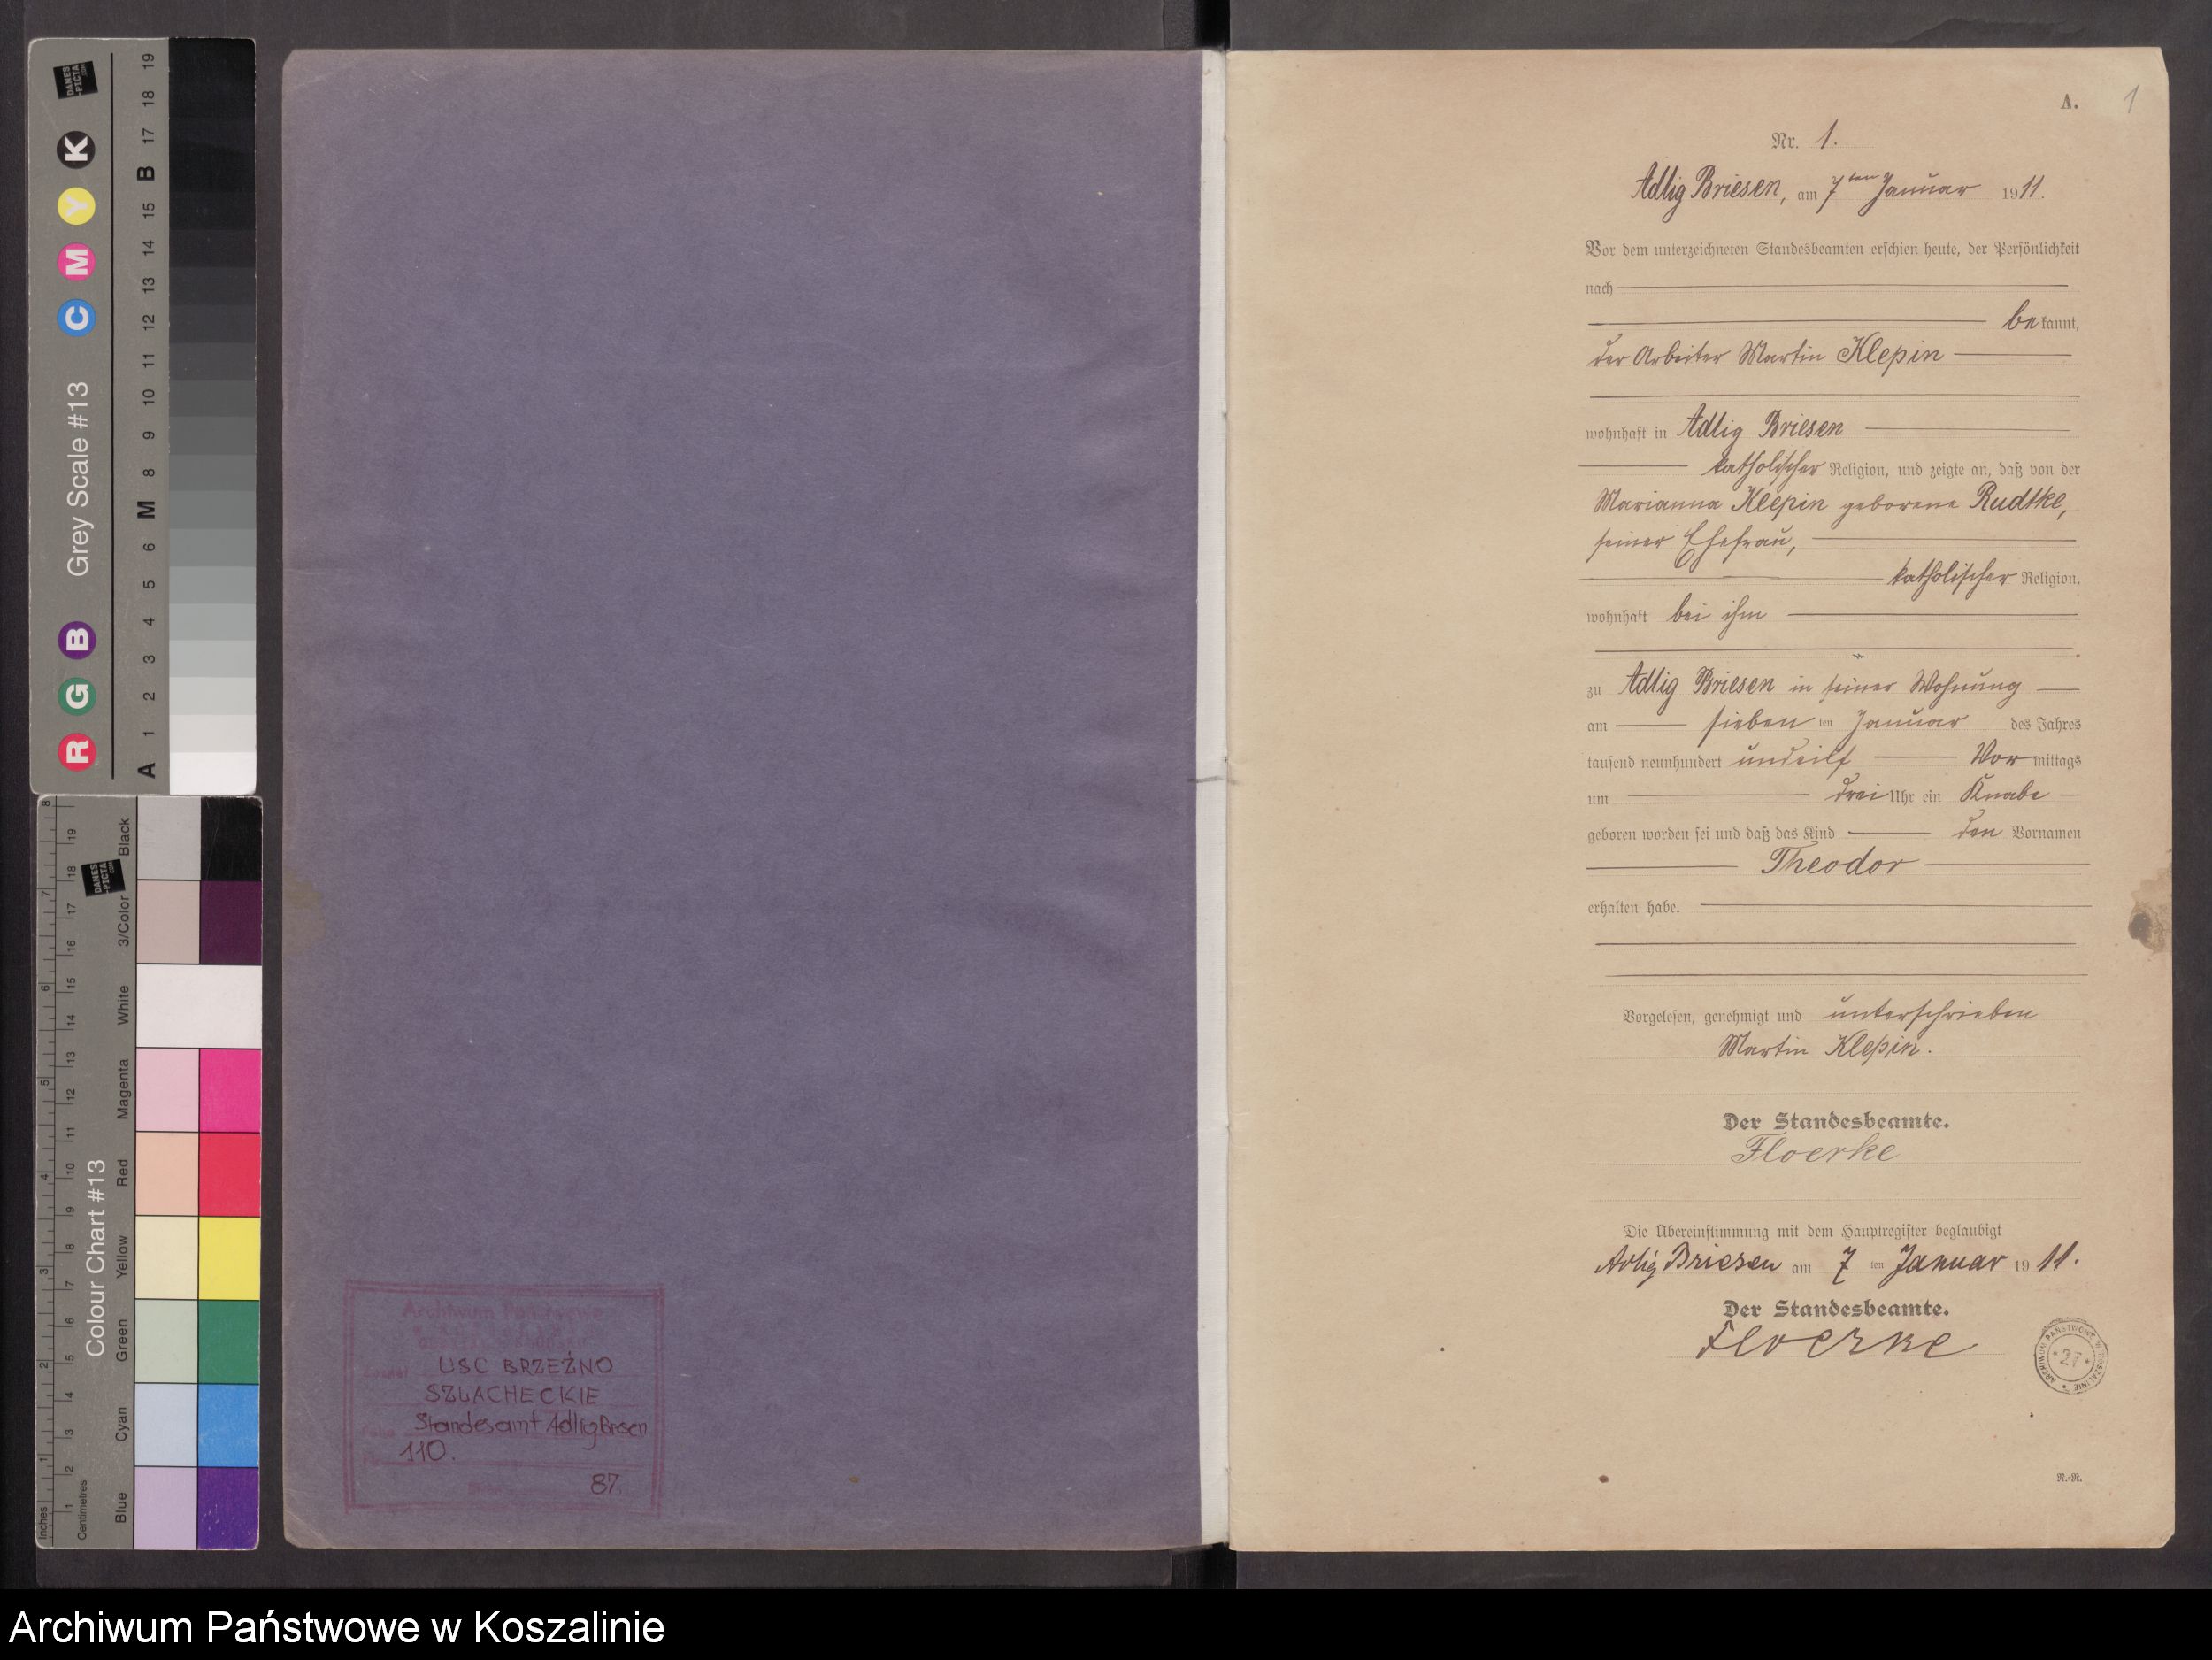 A. 1
Nr. 1.
Adlig Briesen, am 7ten Januar 1911.
Vor dem unterzeichneten Standesbeamten erschien heute, der Persönlichkeit
nach
bekannt,
der Arbeiter Martin Klepin
wohnhaft in Adlig Briesen
katholischer Religion, und zeigte an, daß von der
Marianna Klepin geborene Rudtke,
seiner Ehefrau,
katholischer Religion,
wohnhaft bei ihm
zu Adlig Briesen in seiner Wohnung
am sieben ten Januar des Jahres
tausend neunhundert undeilf Vormittags
um drei Uhr ein Knabe
geboren worden sei und daß das Kind den Vornamen
Theodor
erhalten habe.
Vorgelesen, genehmigt und unterschrieben
Martin Klepin.
Der Standesbeamte.
Floerke
Die Übereinstimmung mit dem Hauptregister beglaubigt
Adlig Briesen am 7 ten Januar 1911.
Der Standesbeamte.
Floerke
ARCHIWUM PAŃSTWOWE W KOSZALINIE
* 27 *
N.-R.
Archiwum Państwowe
USC BRZEŹNO
SZLACHECKIE
Standesamt Adlig Bresen
110.
87.
Grey Scale #13
DANES
-PICTA
.COM
R G B C M Y K
A 1 2 3 4 5 6 M 8 9 10 11 12 13 14 15 B 17 18 19
Colour Chart #13
DANES
-PICTA
.COM
Blue Cyan Green Yellow Red Magenta White 3/Color Black
Inches 1 2 3 4 5 6 7 8
Centimetres 1 2 3 4 5 6 7 8 9 10 11 12 13 14 15 16 17 18 19
Archiwum Państwowe w Koszalinie